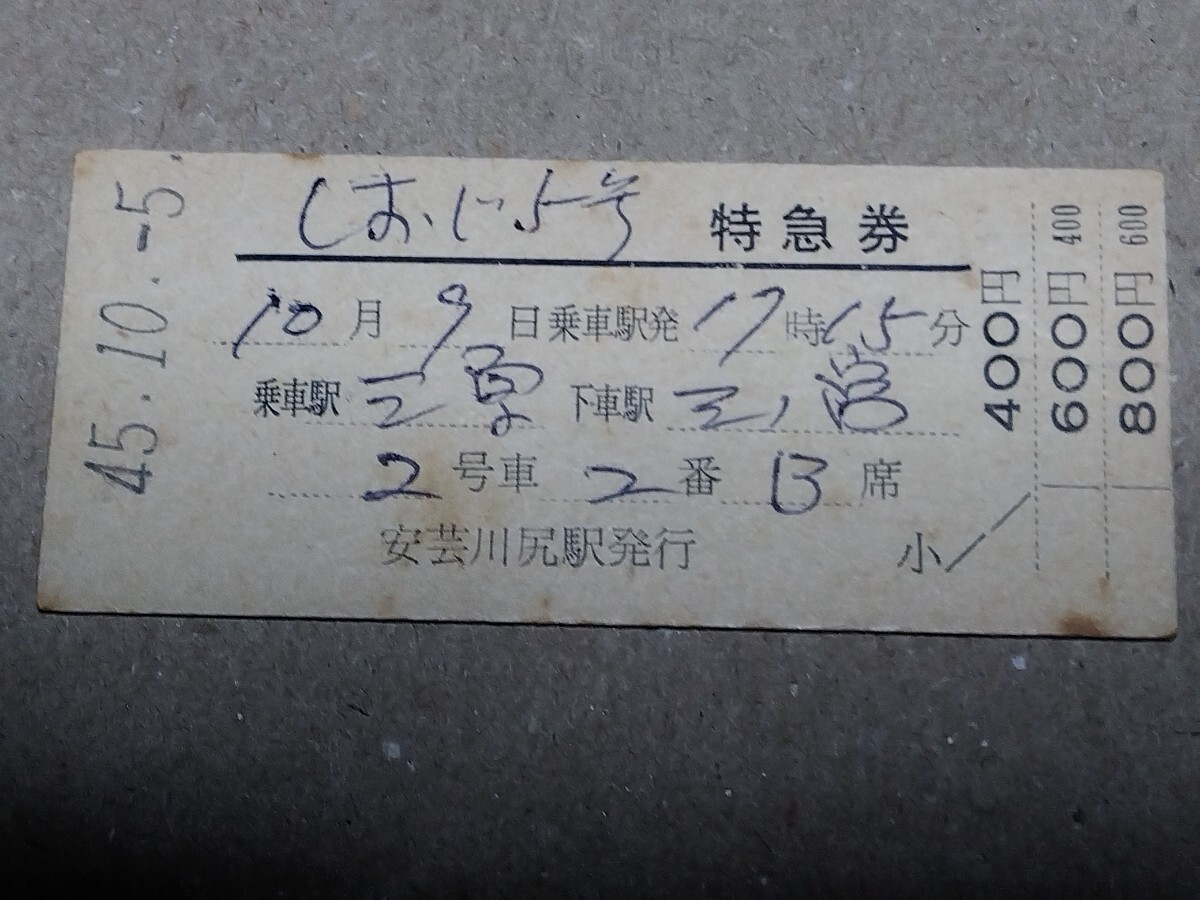 45.10.-5
しおじ5号 特急券
10月9日乗車駅発17時15分
乗車駅 三原 下車駅 三ノ宮
2号車 2番 B席
安芸川尻駅発行 小
400円
600円 400
800円 600